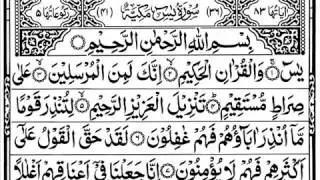 اٰيَاتُهَا ۸۳ (۳۶) سُوْرَةُ يٰسٓ مَكِّيَّةٌ (۴۱) رُكُوْعَاتُهَا ۵
بِسْمِ اللهِ الرَّحْمٰنِ الرَّحِيْمِ
يٰسٓ ۚ وَالْقُرْاٰنِ الْحَكِيْمِ ۙ اِنَّكَ لَمِنَ الْمُرْسَلِيْنَ ۙ عَلٰى
صِرَاطٍ مُّسْتَقِيْمٍ ؕ تَنْزِيْلَ الْعَزِيْزِ الرَّحِيْمِ ۙ لِتُنْذِرَ قَوْمًا
مَّاۤ اُنْذِرَ اٰبَآؤُهُمْ فَهُمْ غٰفِلُوْنَ ۶ لَقَدْ حَقَّ الْقَوْلُ عَلٰۤى
اَكْثَرِهِمْ فَهُمْ لَا يُؤْمِنُوْنَ ۷ اِنَّا جَعَلْنَا فِيْۤ اَعْنَاقِهِمْ اَغْلٰلًا